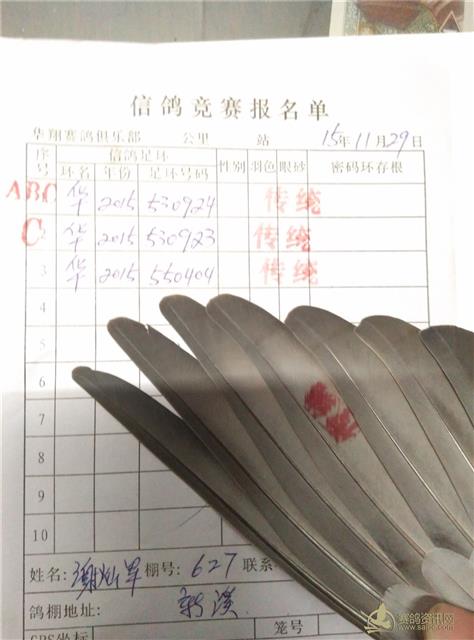 信鸽竞赛报名单
华翔赛鸽俱乐部 公里 站 15年11月29日
序号 信鸽足环 性别 羽色 眼砂 密码环存根
环名 年份 足环号码
ABC 华 2015 530924 传统
C 华 2015 530923 传统
3 华 2015 550404 传统
4
5
6
7
8
9
10
姓名: 棚号: 627 联系
鸽棚地址: 新溪
GPS坐标 笼号
赛鸽资讯网